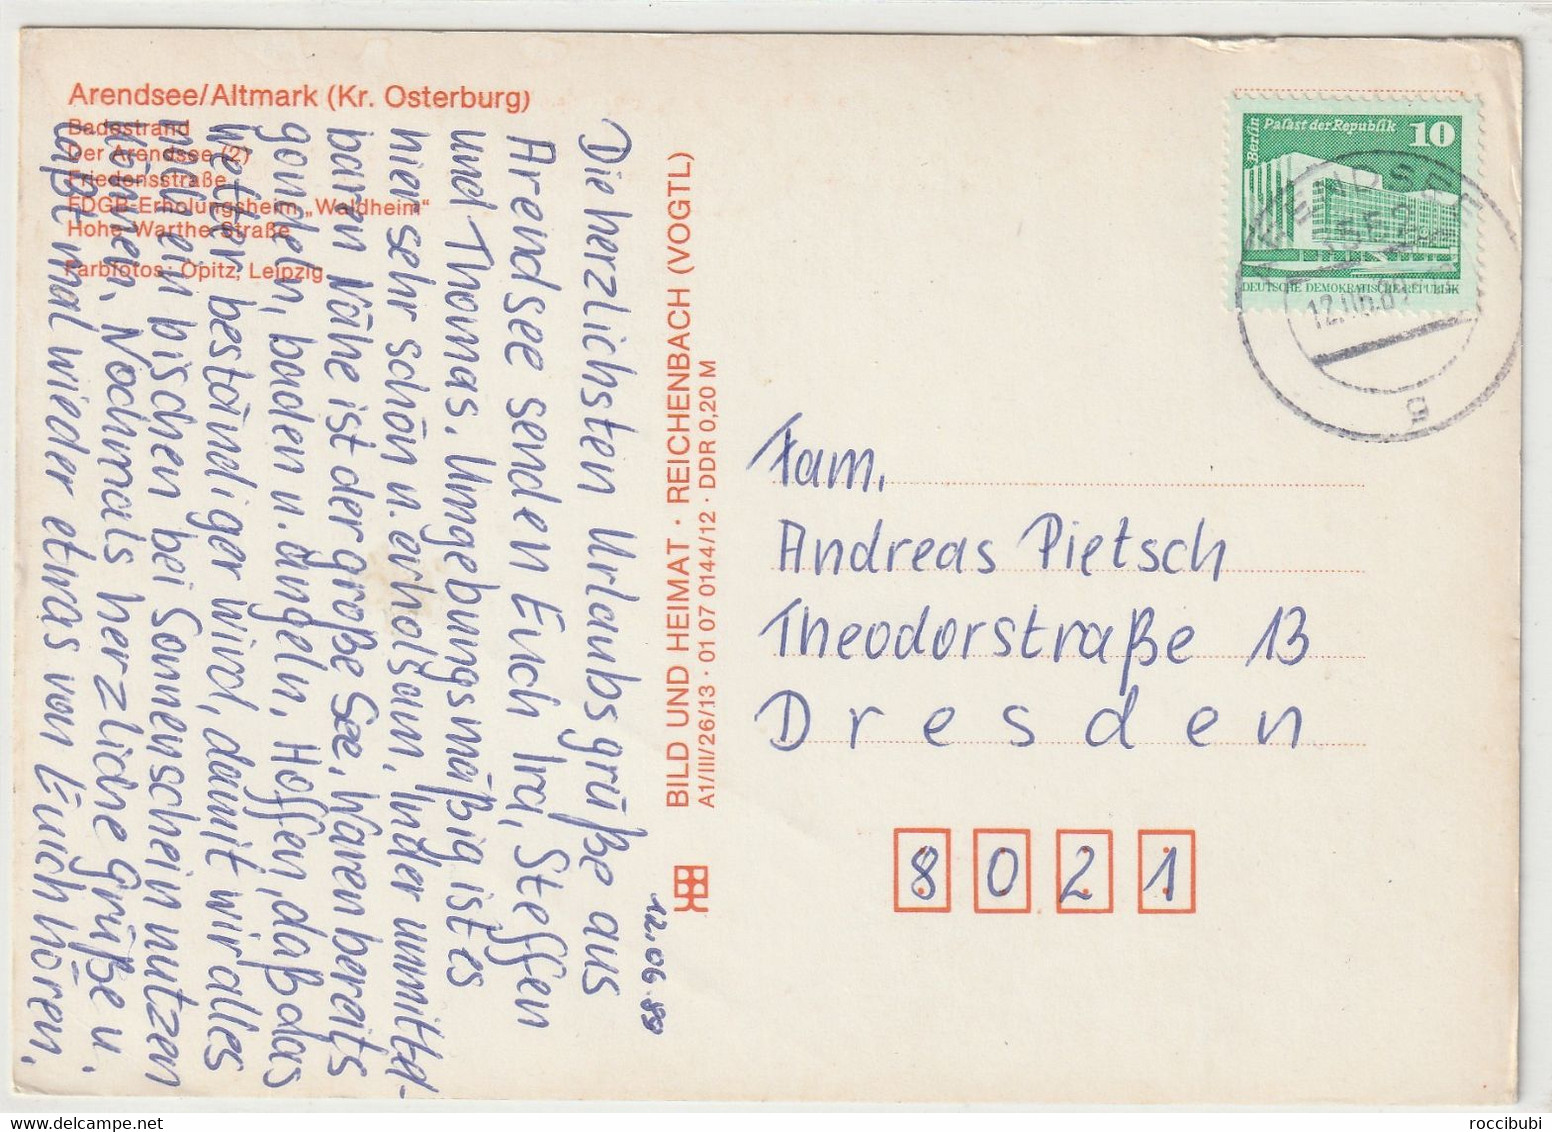 Arendsee/Altmark (Kr. Osterburg)
Badestrand
Der Arendsee (2)
Friedensstraße
FDGB-Erholungsheim „Waldheim"
Hohe-Warthe-Straße
Farbfotos: Opitz, Leipzig
12.06.89
Die herzlichsten Urlaubsgrüße aus
Arendsee senden Euch Ira, Steffen
und Thomas. Umgebungsmäßig ist es
hier sehr schön u. erholsam. In der unmittel-
baren Nähe ist der große See, waren bereits
gondeln, baden u. angeln. Hoffen, daß das
Wetter beständiger wird, damit wir alles
mal ein bischen bei Sonnenschein nutzen
können. Nochmals herzliche Grüße u.
laßt mal wieder etwas von Euch hören.
BILD UND HEIMAT · REICHENBACH (VOGTL)
A1/III/26/13 · 01 07 0144/12 · DDR 0,20 M
Berlin
Palast der Republik
10
DEUTSCHE DEMOKRATISCHE REPUBLIK
12.06.89
g
Fam.
Andreas Pietsch
Theodorstraße 13
Dresden
8021
roccibubi